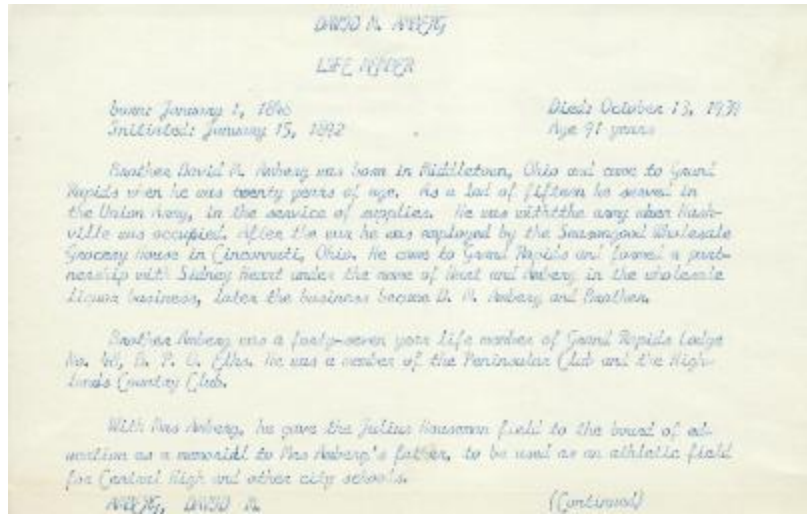 DAVID M. AMBERG
LIFE MEMBER
Born: January 1, 1848 Died: October 13, 1939
Initiated: January 15, 1892 Age 91 years
Brother David M. Amberg was born in Middletown, Ohio and came to Grand
Rapids when he was twenty years of age. As a lad of fifteen he served in
the Union Army, in the service of supplies. He was with the army when Nash-
ville was occupied. After the war he was employed by the Seasongood Wholesale
Grocery House in Cincinnati, Ohio. He came to Grand Rapids and formed a part-
nership with Sidney Heart under the name of and Amberg in the wholesale
Liquor business, later the business became D. M. Amberg and Brother.
Brother Amberg was a forty-seven year life member of Grand Rapids Lodge
No. 48, B. P. O. Elks. He was a member of the Peninsular Club and the High-
lands Country Club.
With Mrs Amberg, he gave the Julius Houseman field to the board of ed-
ucation as a memorial to Mrs Amberg's father, to be used as an athletic field
for Central High and other city schools.
AMBERG, DAVID M. (Continued)